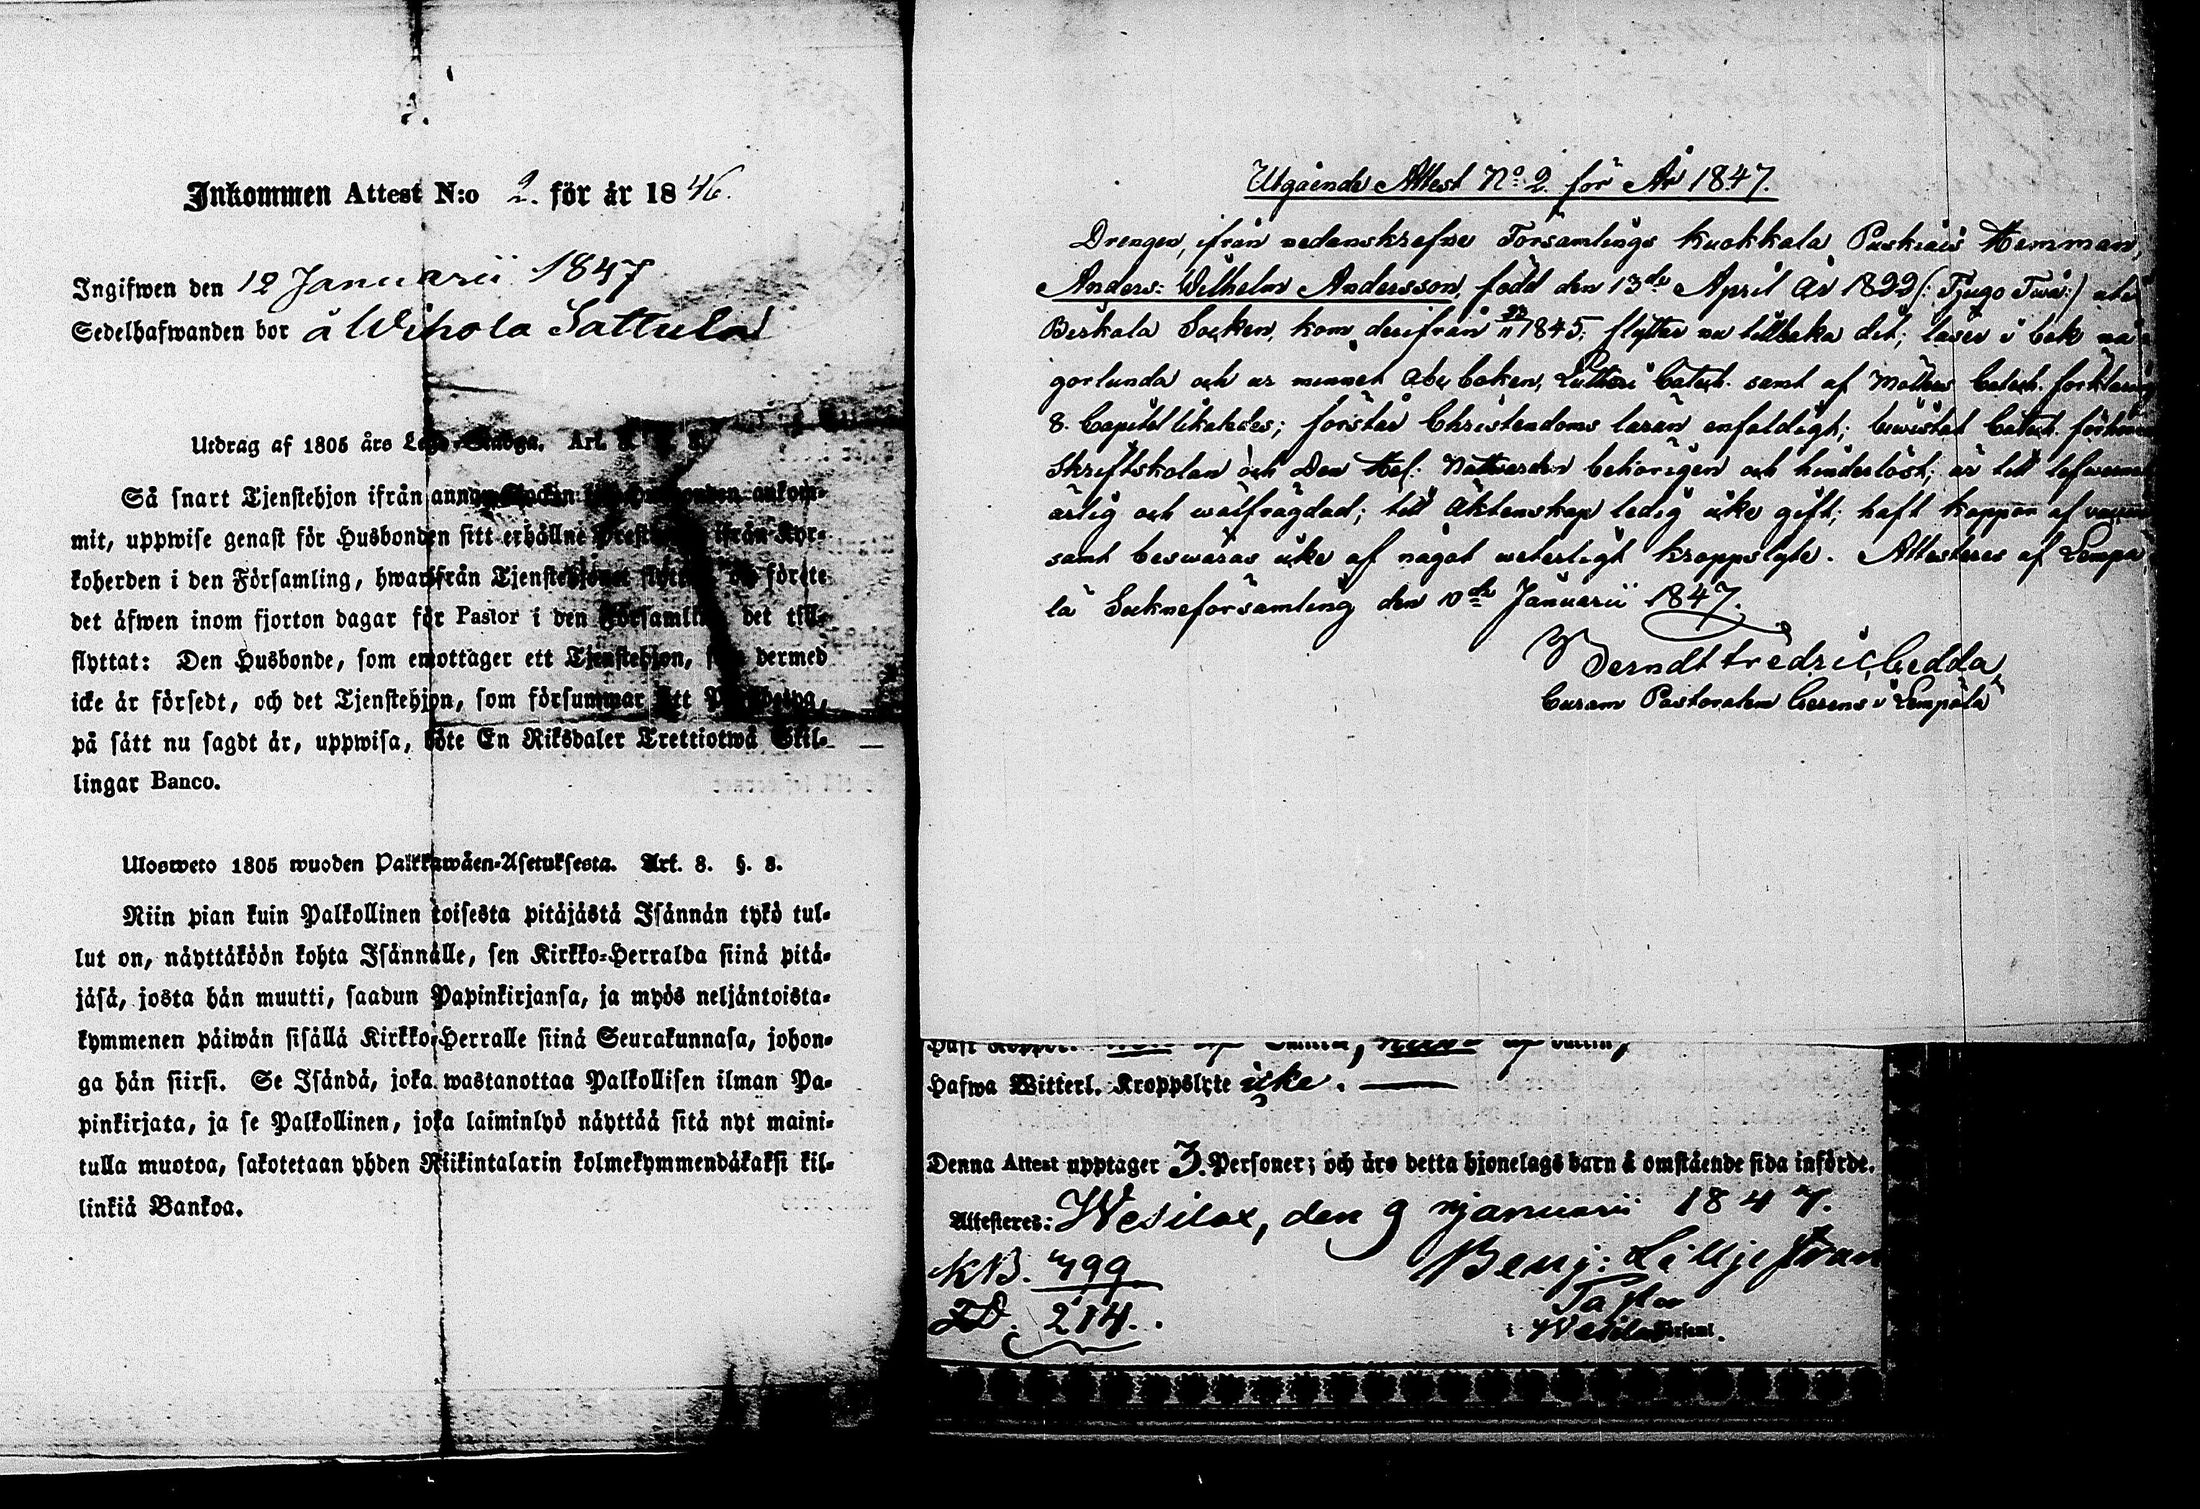 Inkommen Attest N:o 2. för år 1846.
Ingifwen den 12 Januarii 1847
Sedelhafwanden bor å Wihola Sattula
Utdrag af 1805 års Lego-Stadga. Art.
Så snart Tjenstehjon ifrån annan Socken ankom-
mit, uppwise genast för Husbonden sitt erhållne ifrån Kyr-
koherden i den Församling, hwarifrån Tjenstehjonet förete
det äfwen inom fjorton dagar för Pastor i den Församling det till-
flyttat: Den Husbonde, som emottager ett Tjenstehjon, dermed
icke är försedt, och det Tjenstehjon, som försummar
på sätt nu sagdt är, uppwisa, böte En Riksdaler Trettiotwå Skil-
lingar Banco.
Ulosweto 1805 wuoden Palkkawäen-Asetuksesta. Art. 8. §. 8.
Niin pian kuin Palkollinen toisesta pitäjästä Isännän tykö tul-
lut on, näyttäköön kohta Isännälle, sen Kirkko-Herralda siinä pitä-
jäsä, josta hän muutti, saadun Papinkirjansa, ja myös neljäntoista-
kymmenen päiwän sisällä Kirkko-Herralle siinä Seurakunnasa, johon-
ga hän siirsi. Se Isändä, joka wastanottaa Palkollisen ilman Pa-
pinkirjata, ja se Palkollinen, joka laiminlyö näyttää sitä nyt maini-
tulla muotoa, sakotetaan yhden Riikintalarin kolmekymmendäkaksi kil-
linkiä Bankoa.
Utgående Attest No 2 för År 1847.
Drengen, ifrån nedanskrefne Församlings Kuokkala Hemman,
Anders Wilhelm Andersson, född den 13de April år 1822 (: Tjugo Twå:) uti
Birkala Socken, kom derifrån 1845, flyttar nu tillbaka dit; läser i bok nå-
gorlunda och ur minnet Abc boken, Lutheri Catech. samt af Catech. förklaring
8. Capitel likaledes; förstår Christendoms läran enfaldigt; bewistat Catech.
Skriftskolan och Den Hel. Nattvarden behörigen och hinderlöst; är till lefwernet
ärlig och wälfrägdad; till Äktenskap ledig icke gift; haft koppor af
samt beswäras icke af något weterligt kroppslyte. Attesteras af Lempä-
lä Sockneförsamling den 10de Januarii 1847.
Berndt Fredric Cedda
Curam Pastoralem Gerens i Lempälä
Hafwa Witterl. Kroppslyte icke.
Denna Attest upptager 3. Personer; och äro detta hjonelags barn å omstående sida införde.
Attesteres: Wesilax, den 9 Januarii 1847.
KB. 799
Benj: Lilljeström
214.
Pastor
i Wesilax Församl.